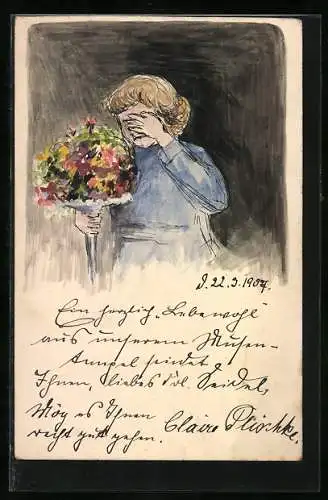 d. 22.3.1904.
Ein herzlich „Lebewohl“
aus unserem Musen-
tempel sendet
Ihnen, liebes Frl. Seidel,
Mög es Ihnen
recht gut gehen. Claire Plischke.